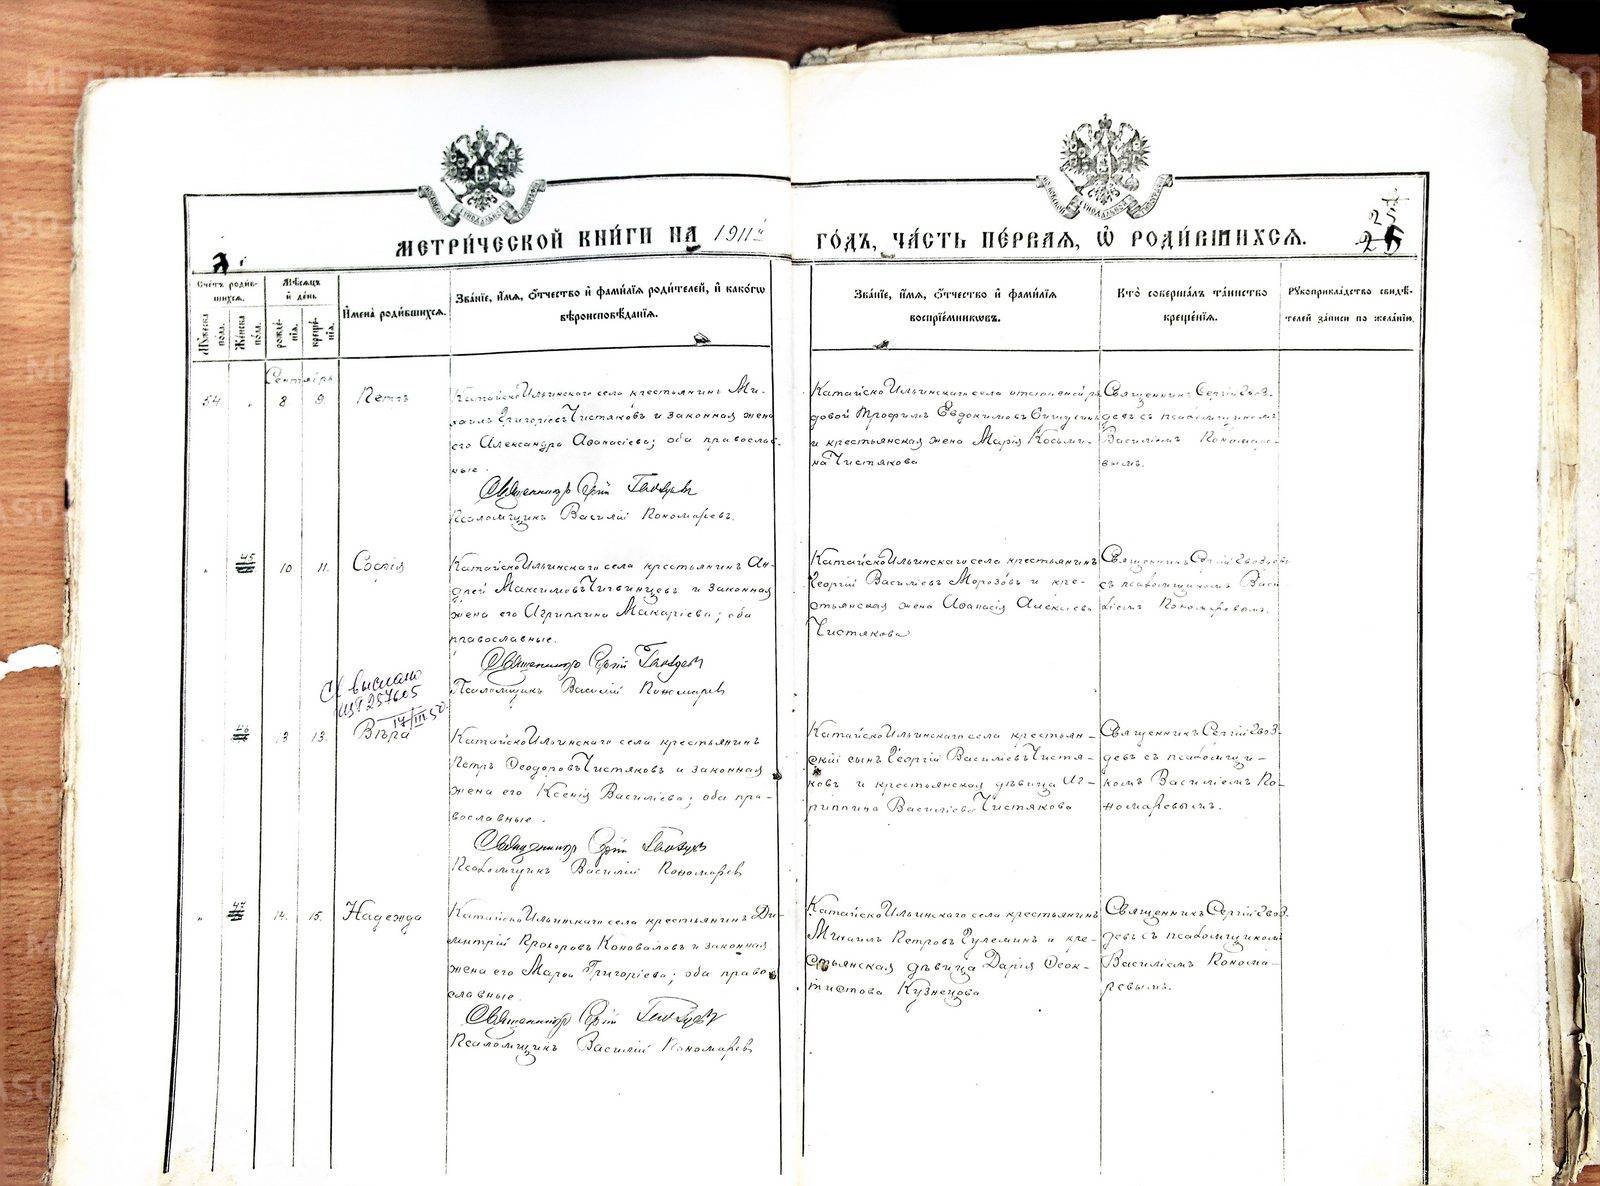 МЕТРИ́ЧЕСКОЙ КНИ́ГИ НА 1911й
ГО́ДЪ, ЧА́СТЬ ПЕ́РВАЯ, Ѡ РОДИ́ВШИХСЯ.
25
Сче́тъ роди́в-
шихся.
Му́жеска по́ла.
Же́нска по́ла.
Мѣ́сяцъ
и де́нь
рожде́нія.
креще́нія.
И́мена роди́вшихся.
Зва́ніе, и́мя, о́тчество и фами́лія роди́телей, и како́гѡ
вѣроисповѣ́данія.
Зва́ніе, и́мя, о́тчество и фами́лія
воспріе́мниковъ.
Кто́ соверша́лъ та́инство
креще́нія.
Рукоприкла́дство свидѣ́-
телей за́писи по жела́нію.
Сентябрь
54 " 8 9. Петръ
КатайскоИльинскаго села крестьянинъ Ми-
хаилъ Григоріевъ Чистяковъ и законная жена
его Александра Аѳанасіева; оба православ-
ные.
Священникъ Сергій Гвоздевъ
Псаломщикъ Василій Пономаревъ.
КатайскоИльинскаго села
довой Трофимъ Евдокимовъ
и крестьянская жена Марія Косьми-
на Чистякова
Священникъ Сергій Гвоз-
девъ съ псаломщикомъ
Василіемъ Пономаре-
вымъ.
" 45 10 11. Софія
КатайскоИльинскаго села крестьянинъ Ан-
дрей Максимовъ и законная
жена его Агриппина Макаріева; оба
православные.
Священникъ Сергій Гвоздевъ
Псаломщикъ Василій Пономаревъ
КатайскоИльинскаго села крестьянинъ
Георгій Василіевъ Морозовъ и кре-
стьянская жена Аѳанасія Алексіева
Чистякова
Священникъ Сергій Гвоздевъ
съ псаломщикомъ Васи-
ліемъ Пономаревымъ.
выслано
257605
17/III.50.
" 46 13 13. Вѣра
КатайскоИльинскаго села крестьянинъ
Петръ Ѳеодоровъ Чистяковъ и законная
жена его Ксенія Василіева; оба пра-
вославные.
Священникъ Сергій Гвоздевъ
Псаломщикъ Василій Пономаревъ
КатайскоИльинскаго села крестьян-
скій сынъ Георгій Василіевъ Чистя-
ковъ и крестьянская дѣвица Аг-
риппина Василіева Чистякова
Священникъ Сергій Гвоз-
девъ съ псаломщи-
комъ Василіемъ По-
номаревымъ.
" 47 14. 15. Надежда
КатайскоИльинскаго села крестьянинъ Ди-
митрій Прохоровъ Коноваловъ и законная
жена его Марѳа Григоріева; оба право-
славные.
Священникъ Сергій Гвоздевъ
Псаломщикъ Василій Пономаревъ
КатайскоИльинскаго села крестьянинъ
Михаилъ Петровъ Гулеминъ и кре-
стьянская дѣвица Дарія Ѳеок-
тистова Кузнецова
Священникъ Сергій Гвоз-
девъ съ псаломщикомъ
Василіемъ Понома-
ревымъ.